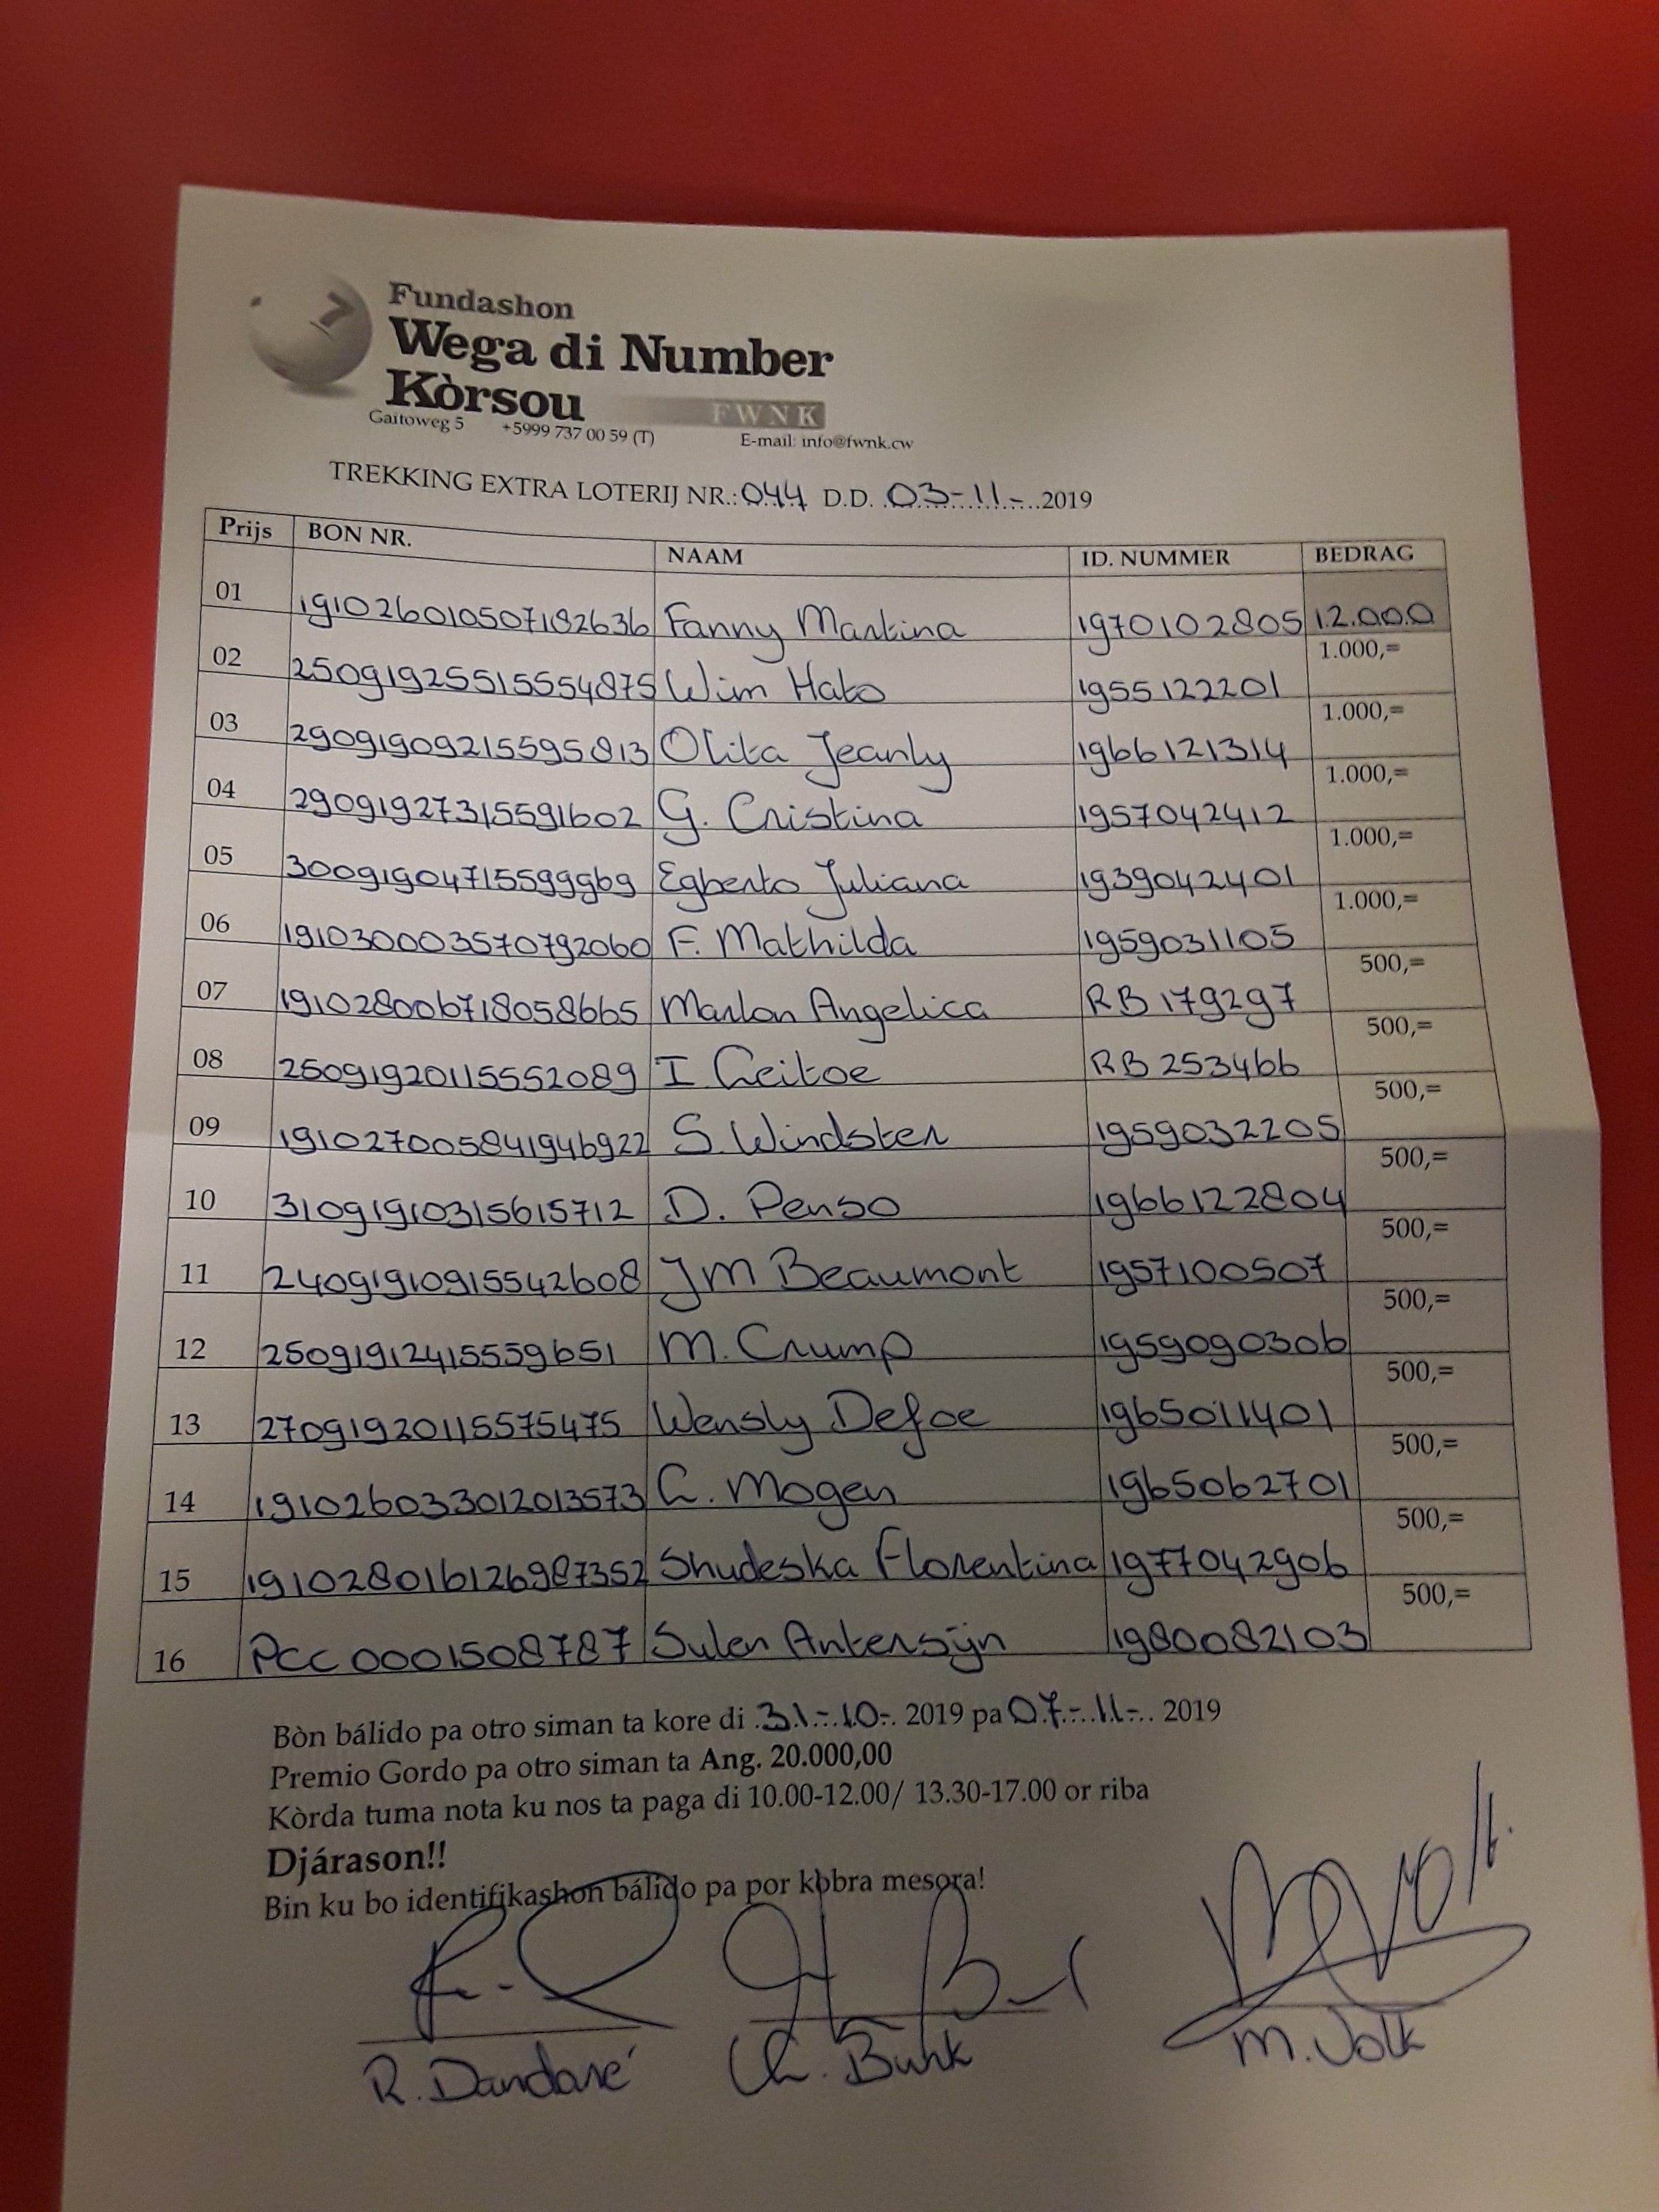 Fundashon
Wega di Number
Kòrsou
FWNK
Gaitoweg 5 +5999 737 00 59 (T) E-mail: info@fwnk.cw
TREKKING EXTRA LOTERIJ NR.: 044 D.D. 03-11-2019
Prijs BON NR. NAAM ID. NUMMER BEDRAG
01 191026010507182636 Fanny Martina 1970102805 12.000
02 250919255515554875 Wim Hato 1955122201 1.000,=
03 29091909215595813 Olita Jeanly 1966121314 1.000,=
04 29091927315591602 G. Cristina 1957042412 1.000,=
05 30091904715599969 Egberto Juliana 1939042401 1.000,=
06 191030003570792060 F. Mathilda 1959031105 1.000,=
07 191028006718058665 Marlon Angelica RB 179297 500,=
08 25091920115552089 I Ceitoe RB 253466 500,=
09 191027005841946922 S. Windster 1959032205 500,=
10 31091910315615712 D. Penso 1966122804 500,=
11 24091910915542608 JM Beaumont 1957100507 500,=
12 25091912415559651 M. Crump 1959090306 500,=
13 27091920115575475 Wensly Defoe 1965011401 500,=
14 191026033012013573 C. Mogen 1965062701 500,=
15 191028016126987352 Shudeska Florentina 1977042906 500,=
16 PCC 0001508787 Sulen Antersijn 1980082103 500,=
Bòn bálido pa otro siman ta kore di 31-10- 2019 pa 07-11- 2019
Premio Gordo pa otro siman ta Ang. 20.000,00
Kòrda tuma nota ku nos ta paga di 10.00-12.00/ 13.30-17.00 or riba
Djárason!!
Bin ku bo identifikashon bálido pa por kobra mesora!
R. Dandaré Ch. Burk M. Volk